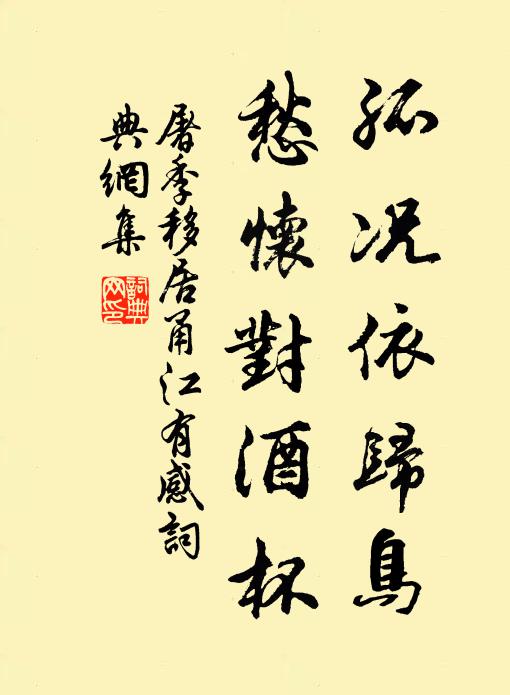 孤况依歸鳥
愁懷對酒杯
屠季移居甬江有感詞
典網集
詞典
网印